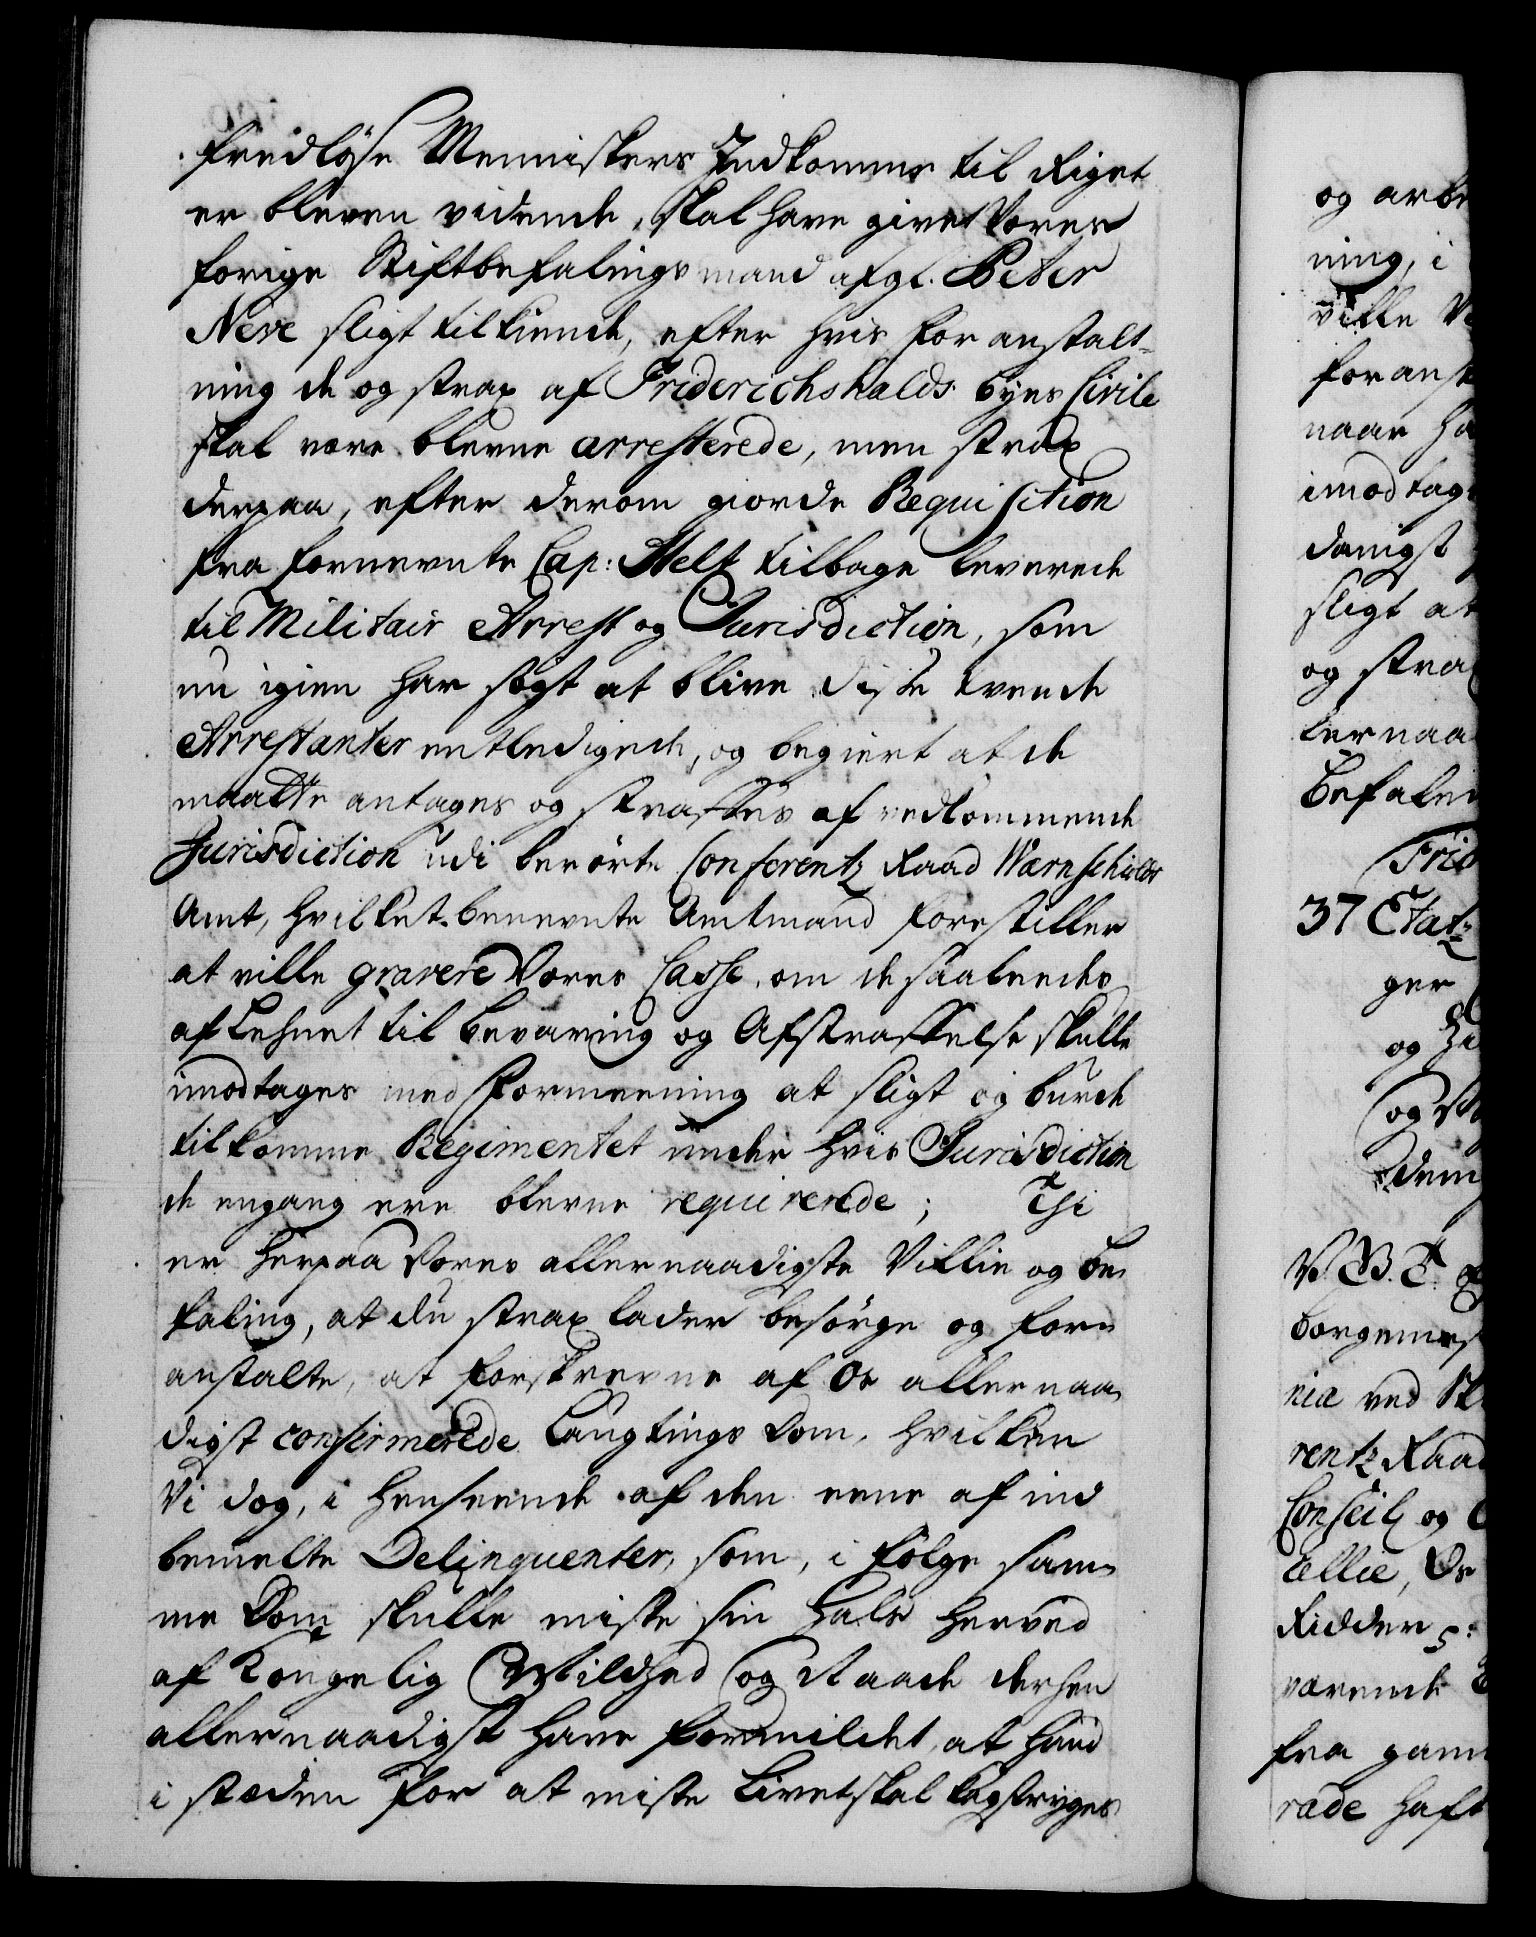 fredløse Menniskers Indkomme til Riget
er bleven vidende, skal have givet Vores
forige Stiftbefalings mand afgl. Peter
Neve sligt tilkiende, efter hvis for anstalt-
ning de og strax af Friderichshalds byes Civile
skal være blevne arresterede, men strax
derpaa, efter derom giorde Requisition
fra fornevnte Cap: Stelt tilbage leverede
til Militair Arrest og Jurisdiction, som
nu igien har søgt at blive diste tvende
Arrestanter entledigede, og begiert at de
maatte antages og straffes af vedkommende
Jurisdiction udi berørte Conferentz Raad Wærnschiolds
Amt, hvilket benevnte Amtmand forestiller
at ville gravere Vores Casse, om de saaleedes
af Lehnet til bevaring og Afstraffelse skulle
imodtages med Formeening at sligt og burde
tilkomme Regimentet under hvis Jurisdiction
de engang ere blevne requirerede; Thi
er herpaa Vores allernaadigste Villie og be-
faling, at du strax lader besørge og for-
anstalte, at forskrevne af Os allernaa-
digst confirmerede Laugtings Dom, hvilken
Vi dog, i henseende af den eene af ind
bemelte Delinquenter, som, i følge sam-
me Dom skulle miste sin Hals herved
af Kongelig Mildhed og Naade derhen
allernaadigst have formildet, at hand
i stæden for at miste Livet skal kagstryges
og arbe
ning, i
ville V
foranst
naar ha
imodtag
danigst
sligt at
og stra
lernaa
Befalei
Frid
37 Etat-
ger
og Hi
og st
dem
V. G. T.
borgemes
niæ ved St
rentz Raad
Conseil og
cellie, Os
Ridder, s:
værende
fra gam
rade haft